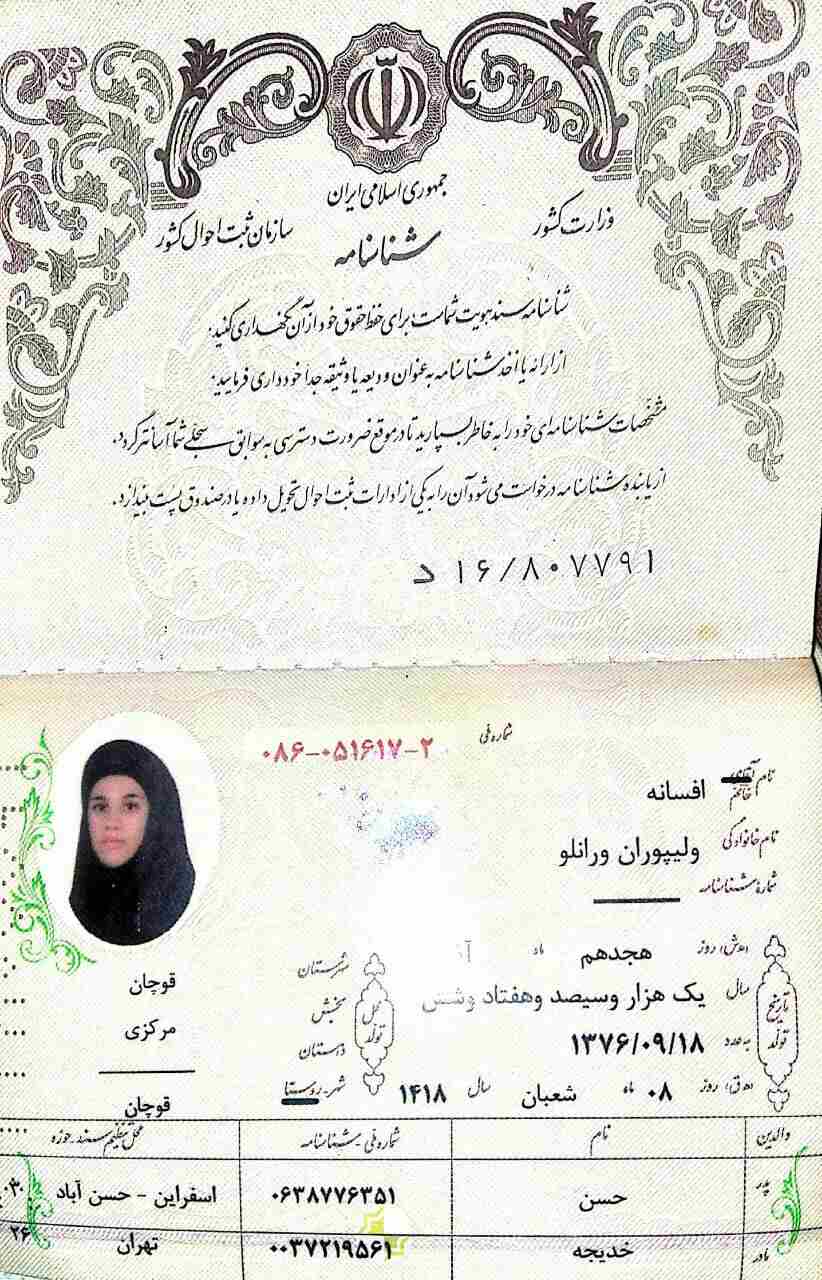 جمهوری اسلامی ایران
وزارت کشور
سازمان ثبت احوال کشور
شناسنامه
شناسنامه سند هویت شماست برای حفظ حقوق خود از آن نگهداری کنید.
از ارائه یا اخذ شناسنامه به عنوان ودیعه یا وثیقه جداً خودداری فرمایید.
مشخصات شناسنامه‌ای خود را به خاطر بسپارید تا در موقع ضرورت دسترسی به سوابق سجلی شما آسانتر گردد.
از یابنده شناسنامه درخواست می‌شود آن را به یکی از ادارات ثبت احوال تحویل داده یا در صندوق پست بیندازد.
د ۱۶/۸۰۷۷۹۱
شماره ملی ۰۸۶-۰۵۱۶۱۷-۲
نام خانم افسانه
نام خانوادگی ولیپوران ورانلو
شماره شناسنامه
تاریخ تولد
(ه‍.ش) روز هجدهم ماه
سال یک هزار وسیصد وهفتاد وشش
به عدد ۱۳۷۶/۰۹/۱۸
(ه‍.ق) روز ۰۸ ماه شعبان سال ۱۴۱۸
محل تولد
شهرستان قوچان
بخش مرکزی
دهستان
شهر-روستا قوچان
والدین نام شماره ملی-شناسنامه محل تنظیم سند-حوزه
پدر حسن ۰۶۳۸۷۷۶۳۵۱ اسفراین - حسن آباد ۰۳۰
مادر خدیجه ۰۰۳۷۲۱۹۵۶۱ تهران ۲۶